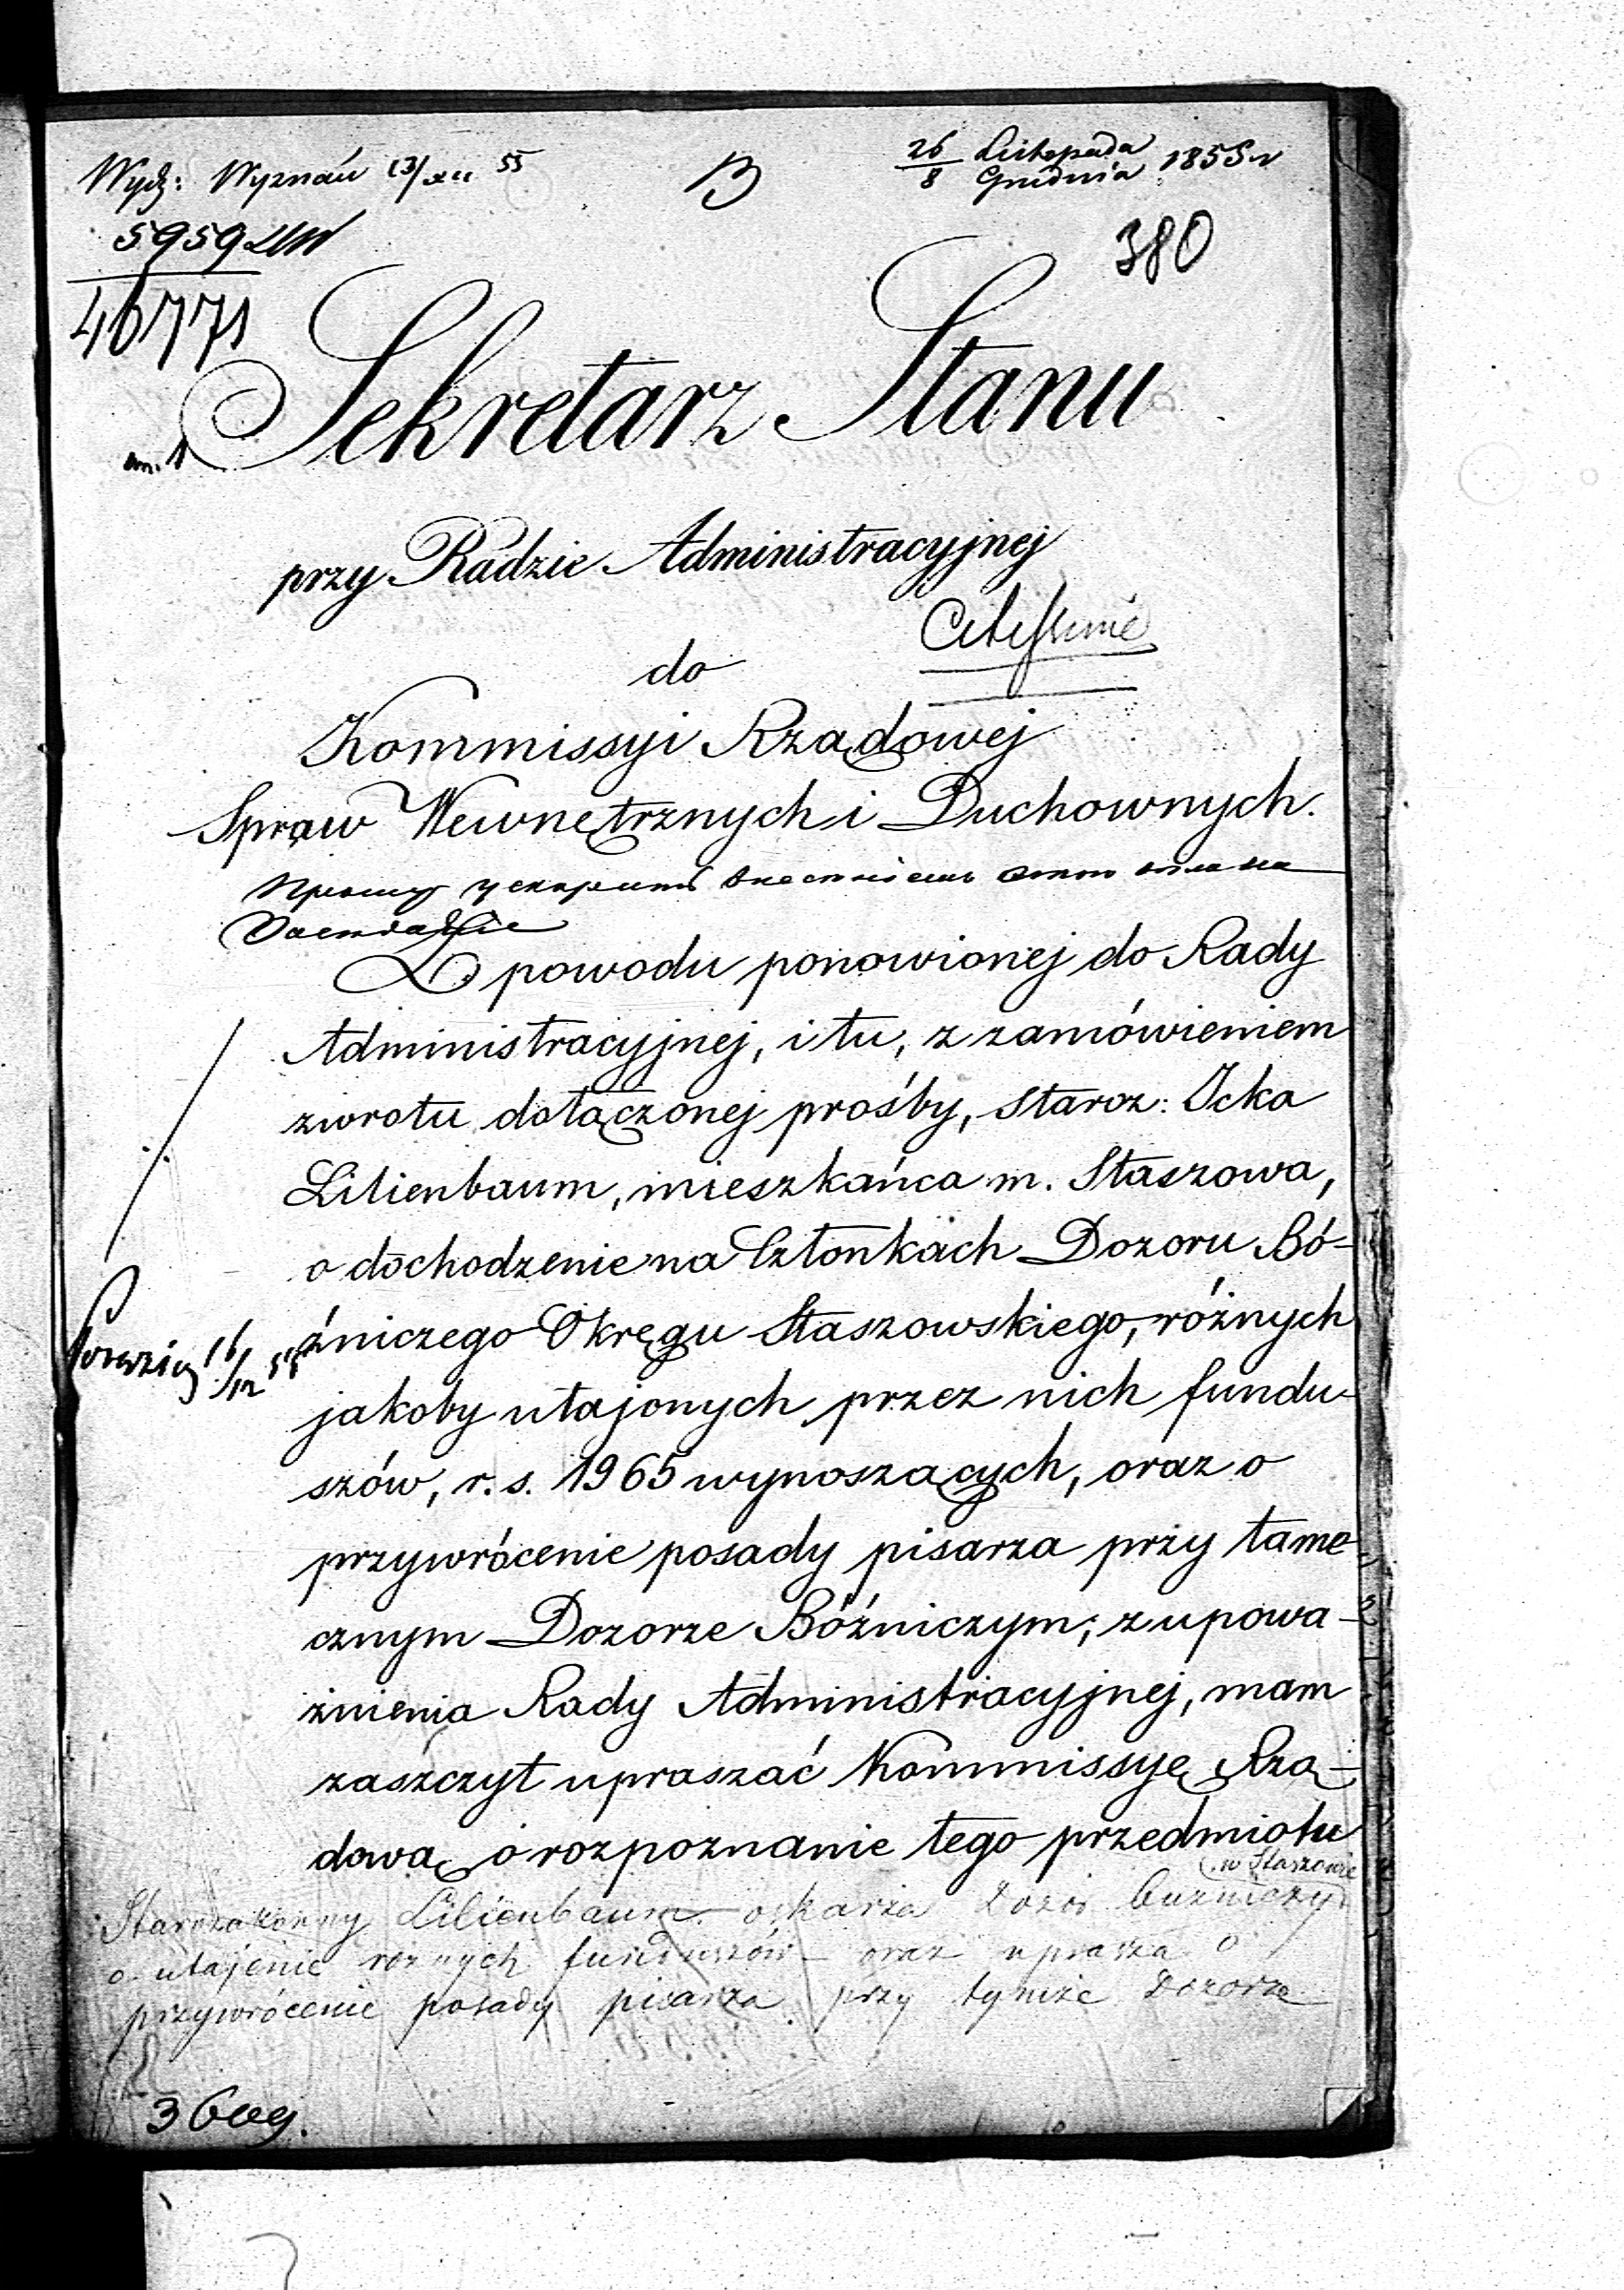 Wydz: Wyznań 13/XII 55
B
26/8 Listopada/Grudnia 1855 r
5959
46771
380
Sekretarz Stanu
przy Radzie Administracyjnej
Citissime
do
Kommissyi Rządowej
Spraw Wewnętrznych i Duchownych.
Прошу ускорить
Z powodu ponowionej do Rady
Administracyjnej, i tu, z zamówieniem
zwrotu dołączonej prośby, staroz: Icka
Lilienbaum, mieszkańca m. Staszowa,
o dochodzenie na Członkach Dozoru Bó-
źniczego Okręgu Staszowskiego, różnych
16/12 55
jakoby utajonych przez nich fundu-
szów, r. s. 1965 wynoszących, oraz o
przywrócenie posady pisarza przy tame-
cznym Dozorze Bóźniczym; z upowa-
żnienia Rady Administracyjnej, mam
zaszczyt upraszać Kommissyę Rzą-
dową o rozpoznanie tego przedmiotu
w Staszowie
Starozakonny Lilienbaum oskarża Dozór Buzniczy
o utajenie roznych funduszów oraz uprasza o
przywrócenie posady pisarza przy tymże Dozorze